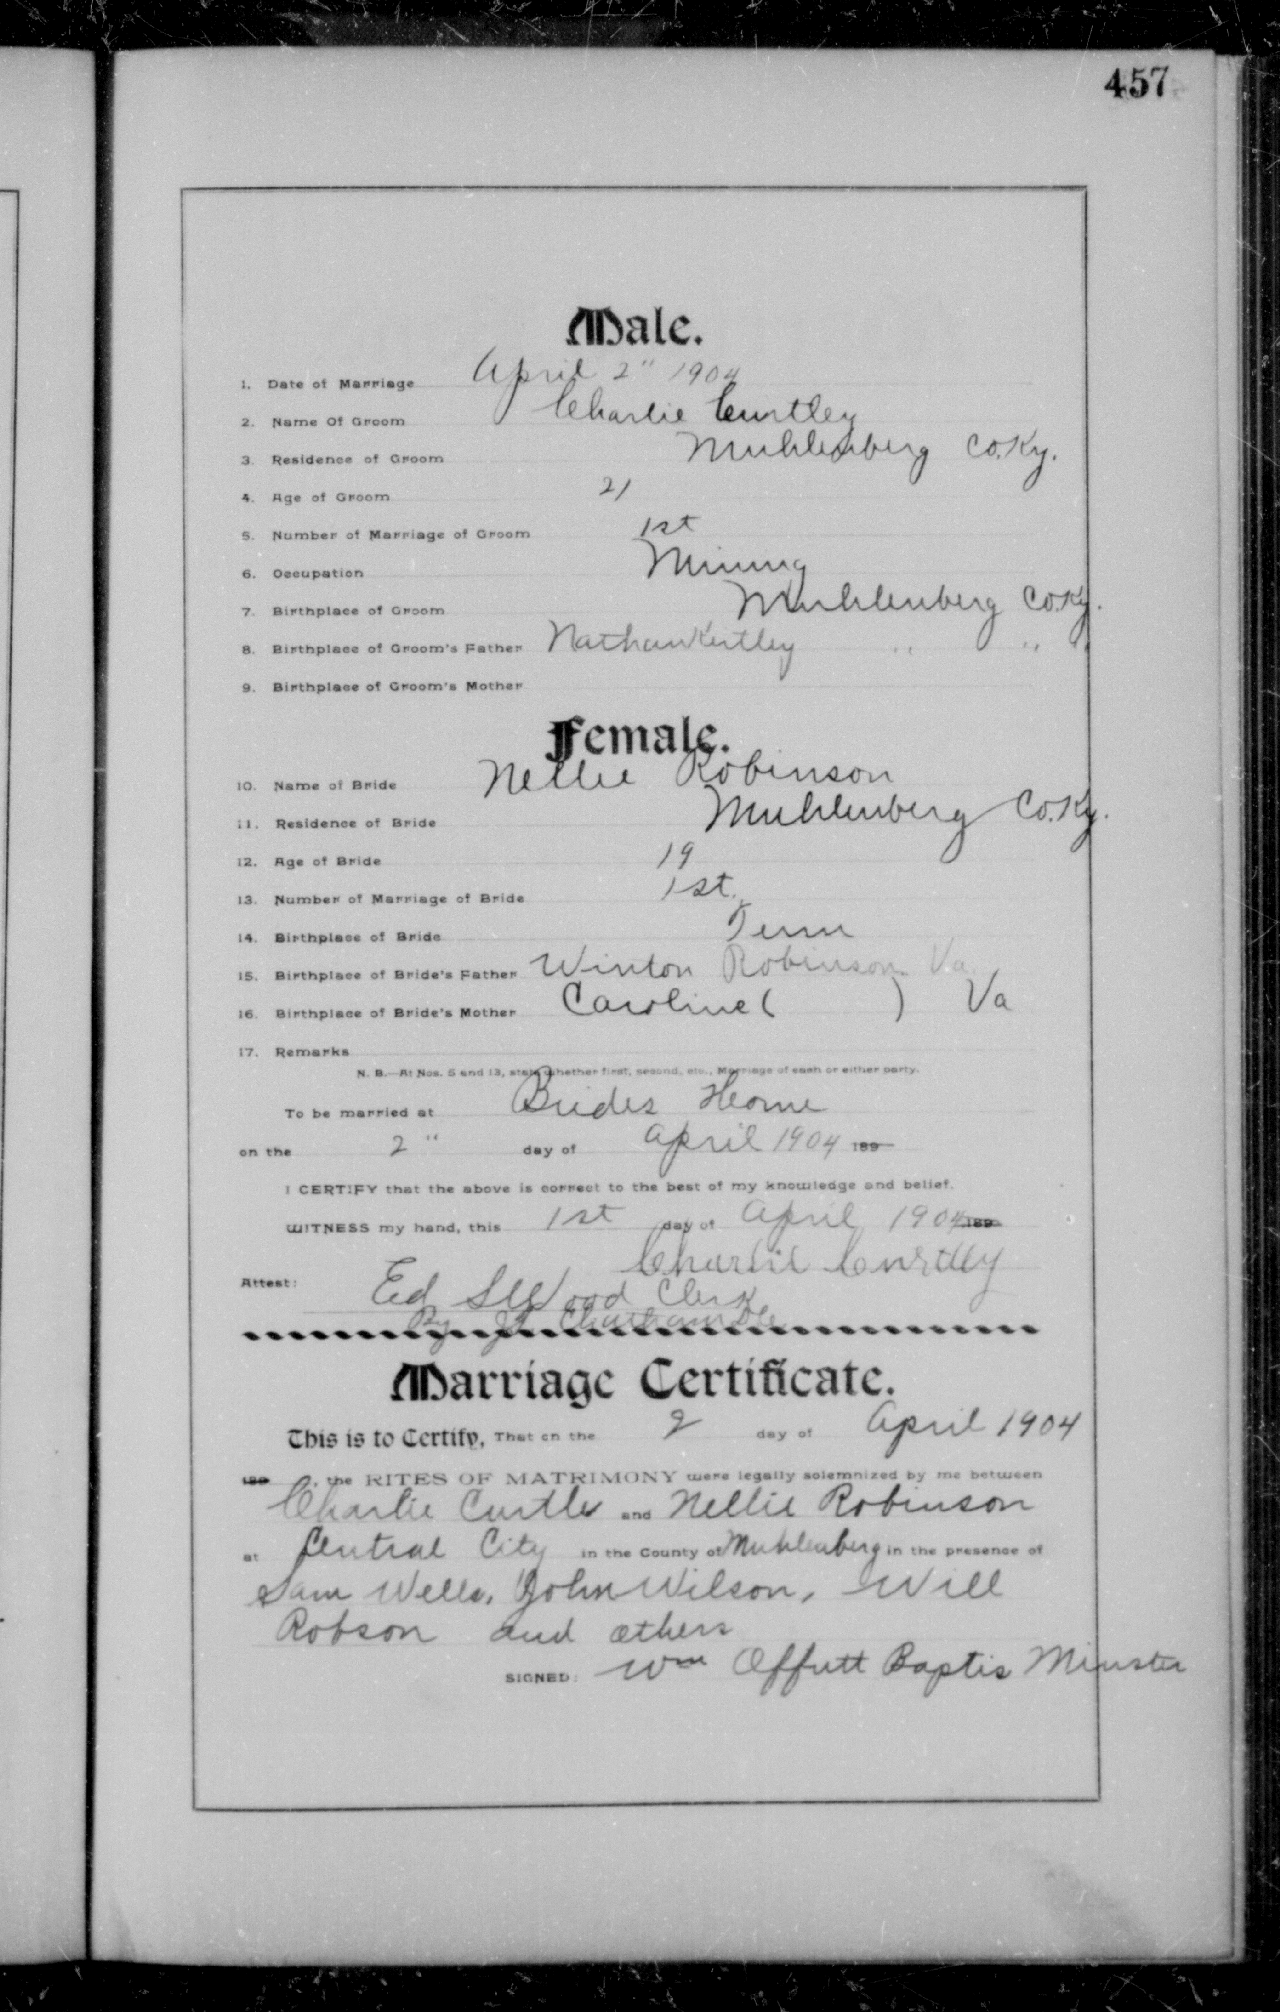 457
Male.
1. Date of Marriage April 2" 1904
2. Name Of Groom Charlie Curtley
3. Residence of Groom Muhlenberg Co. Ky.
4. Age of Groom 21
5. Number of Marriage of Groom 1st
6. Occupation Mining
7. Birthplace of Groom Muhlenberg Co. Ky.
8. Birthplace of Groom's Father Nathan Kertley " " "
9. Birthplace of Groom's Mother
Female.
10. Name of Bride Nellie Robinson
11. Residence of Bride Muhlenberg Co. Ky.
12. Age of Bride 19
13. Number of Marriage of Bride 1st.
14. Birthplace of Bride Tenn
15. Birthplace of Bride's Father Winton Robinson Va.
16. Birthplace of Bride's Mother Caroline ( ) Va
17. Remarks
N. B.—At Nos. 5 and 13, state whether first, second, etc., Marriage of each or either party.
To be married at Brides Home
on the 2" day of April 1904 189
I CERTIFY that the above is correct to the best of my knowledge and belief.
WITNESS my hand, this 1st day of April 1904 189
Charlie Curtley
Attest: Ed S Wood Clerk
By
Marriage Certificate.
This is to Certify, That on the 2 day of April 1904
189 , the RITES OF MATRIMONY were legally solemnized by me between
Charlie Curtley and Nellie Robinson
at Central City in the County of Muhlenberg in the presence of
Sam Wells, John Wilson, Will
Robson and others
SIGNED: Wm Offutt Baptis Minster